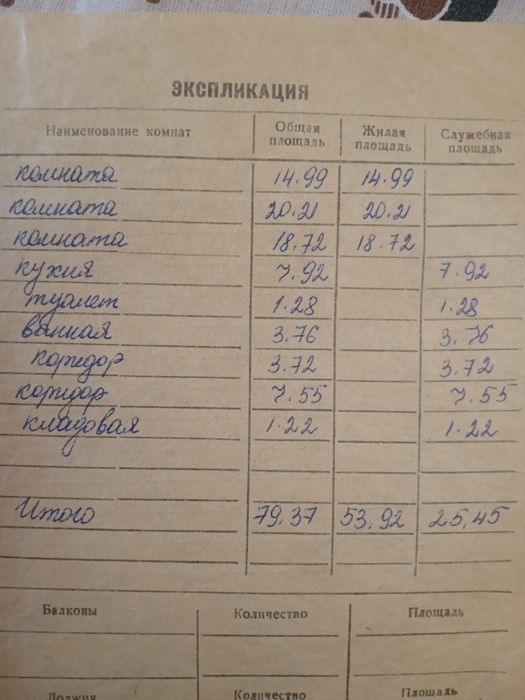 ЭКСПЛИКАЦИЯ
Наименование комнат Общая площадь Жилая площадь Служебная площадь
комната 14.99 14.99
комната 20.21 20.21
комната 18.72 18.72
кухня 7.92 7.92
туалет 1.28 1.28
ванная 3.76 3.76
коридор 3.72 3.72
коридор 7.55 7.55
кладовая 1.22 1.22
Итого 79.37 53,92 25,45
Балконы Количество Площадь
Лоджия Количество Площадь